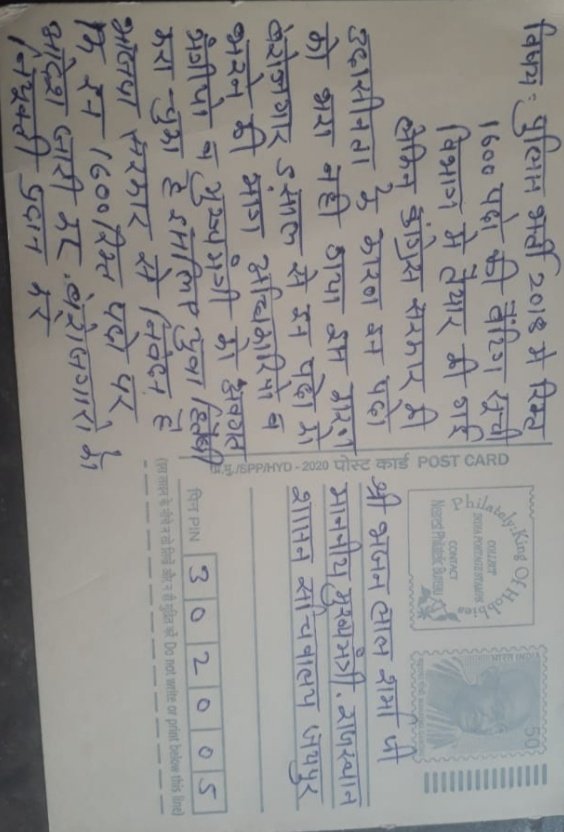 विषय: पुलिस भर्ती 2018 मे रिक्त
1600 पदो की वेटिंग सूची
विभाग मे तैयार की गई
लेकिन कांग्रेस सरकार की
उदासीनता के कारण इन पदो
को भरा नही गया इस कारण
बेरोजगार 5 साल से इन पदो को
भरने की मांग अधिकारियो व
मंत्रीयो व मुख्यमंत्री को अवगत
करा चुका है इसलिए युवा हितैषी
भाजपा सरकार से निवेदन है
कि इन 1600 रिक्त पदो पर
आदेश जारी कर बेरोजगारो को
नियुक्ती प्रदान करे
प्रि.मु./SPP/HYD - 2020 पोस्ट कार्ड POST CARD
Philately: King Of Hobbies
COLLECT
INDIA POSTAGE STAMPS
CONTACT
Nearest Philatelic Bureau
50
श्री भजन लाल शर्मा जी
माननीय मुख्यमंत्री. राजस्थान
शासन सचिवालय जयपुर
पिन PIN 302005
(इस लाइन के नीचे न तो लिखें और न ही मुद्रित करें Do not write or print below this line)